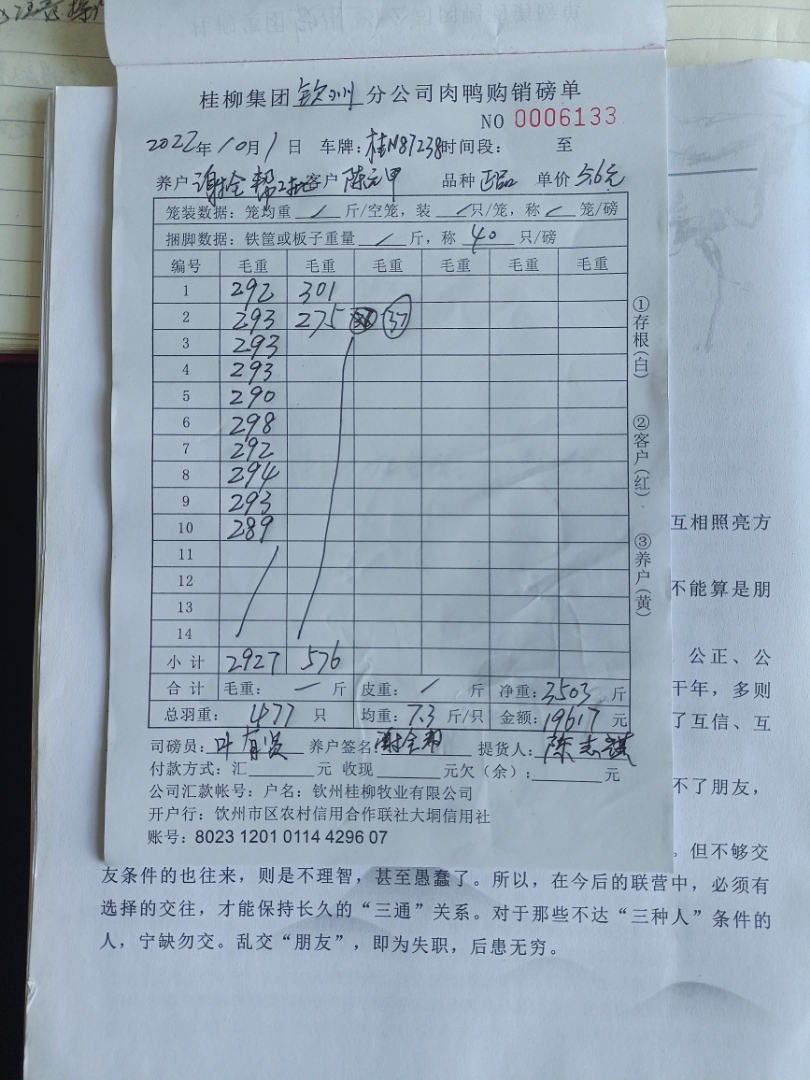 桂柳集团钦州分公司肉鸭购销磅单
NO 0006133
2022年10月1日 车牌:桂N87238时间段: 至
养户谢全帮 客户陈元甲 品种正品 单价5.6元
笼装数据: 笼均重/斤/空笼, 装/只/笼, 称/笼/磅
捆脚数据: 铁筐或板子重量/斤, 称40只/磅
编号 毛重 毛重 毛重 毛重 毛重 毛重
1 292 301
2 293 275 37
3 293
4 293
5 290
6 298
7 292
8 294
9 293
10 289
11
12
13
14
小计 2927 576
合计 毛重: 一 斤 皮重: / 斤 净重:3503斤
总羽重: 477 只 均重:7.3斤/只 金额:19617元
司磅员:叶 养户签名:谢全帮 提货人:陈志
付款方式:汇 元 收现 元欠(余): 元
公司汇款帐号: 户名: 钦州桂柳牧业有限公司
开户行: 饮州市区农村信用合作联社大垌信用社
账号: 8023 1201 0114 4296 07
①存根(白)
②客户(红)
③养户(黄)
互相照亮方
不能算是朋
公正、公
干年，多则
了互信、互
不了朋友，
。但不够交
友条件的也往来，则是不理智，甚至愚蠢了。所以，在今后的联营中，必须有
选择的交往，才能保持长久的“三通”关系。对于那些不达“三种人”条件的
人，宁缺勿交。乱交“朋友”，即为失职，后患无穷。